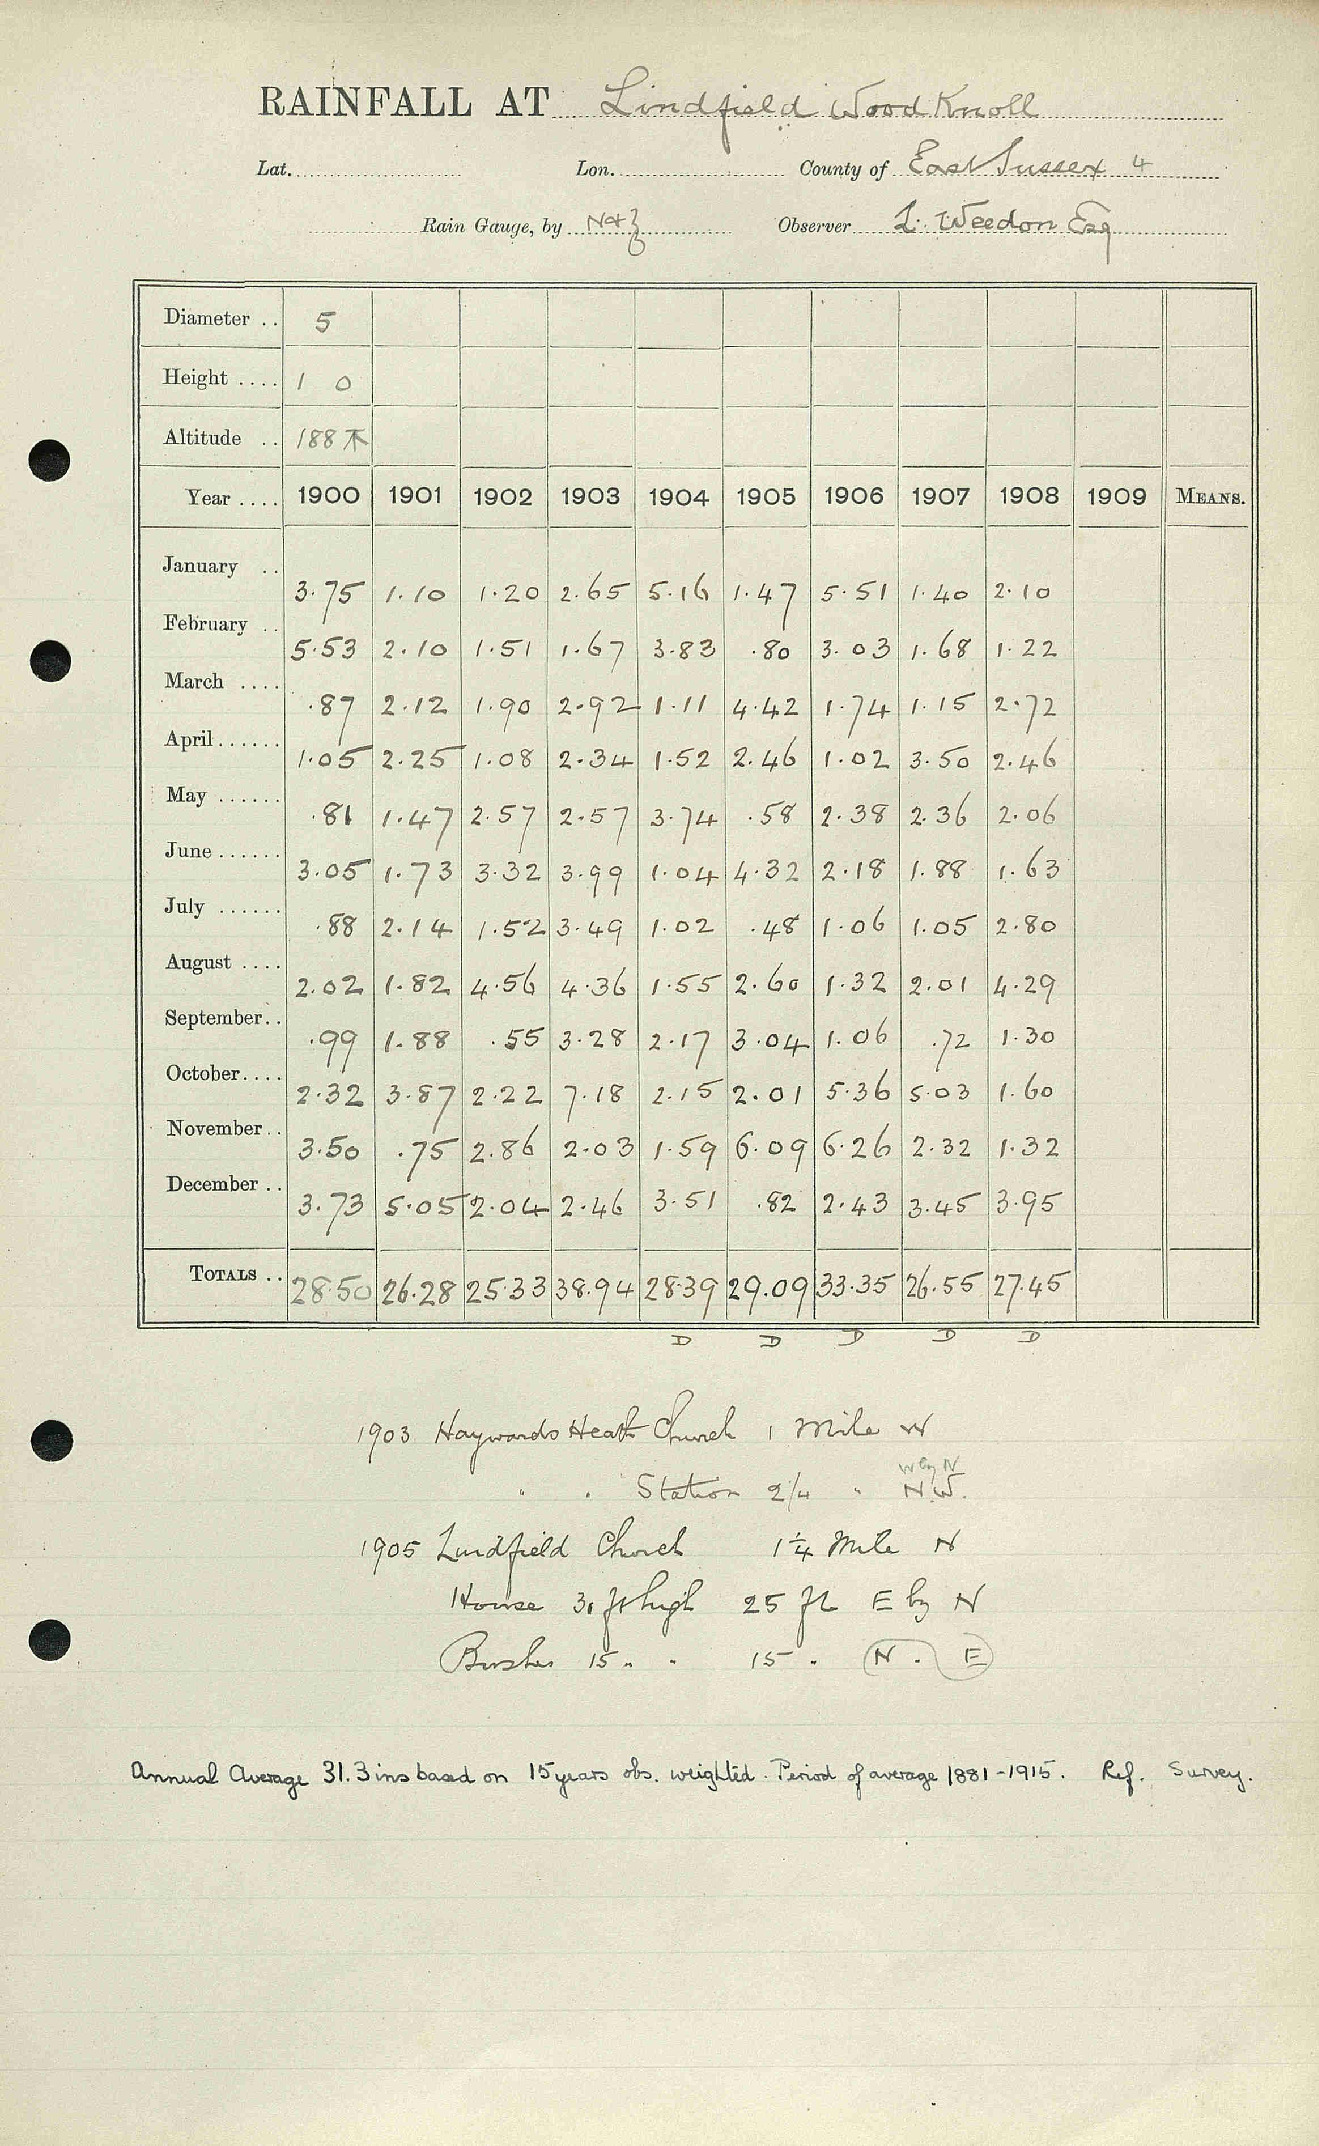 RAINFALL AT Lindfield Wood Knoll
Lat. Lon. County of East Sussex 4
Rain Gauge, by N & Z Observer L. Weedon Esq
Diameter .. 5
Height .... 1 0
Altitude .. 188
Year .... 1900 1901 1902 1903 1904 1905 1906 1907 1908 1909 MEANS.
January .. 3.75 1.10 1.20 2.65 5.16 1.47 5.51 1.40 2.10
February .. 5.53 2.10 1.51 1.67 3.83 .80 3.03 1.68 1.22
March .... .87 2.12 1.90 2.92 1.11 4.42 1.74 1.15 2.72
April ...... 1.05 2.25 1.08 2.34 1.52 2.46 1.02 3.50 2.46
May ...... .81 1.47 2.57 2.57 3.74 .58 2.38 2.36 2.06
June ...... 3.05 1.73 3.32 3.99 1.04 4.32 2.18 1.88 1.63
July ...... .88 2.14 1.52 3.49 1.02 .48 1.06 1.05 2.80
August .... 2.02 1.82 4.56 4.36 1.55 2.60 1.32 2.01 4.29
September.. .99 1.88 .55 3.28 2.17 3.04 1.06 .72 1.30
October.... 2.32 3.87 2.22 7.18 2.15 2.01 5.36 5.03 1.60
November.. 3.50 .75 2.86 2.03 1.59 6.09 6.26 2.32 1.32
December .. 3.73 5.05 2.04 2.46 3.51 .82 2.43 3.45 3.95
TOTALS .. 28.50 26.28 25.33 38.94 28.39 29.09 33.35 26.55 27.45
D D D D D
1903 Haywards Heath Church 1 Mile W
W by N
" " Station 2/4 " N.W.
1905 Lindfield Church 1¼ Mile N
House 31 ft high 25 ft E by N
Bushes 15 " " 15 " N . E
Annual Average 31.3 ins based on 15 years obs. weighted. Period of average 1881-1915. Ref. Survey.